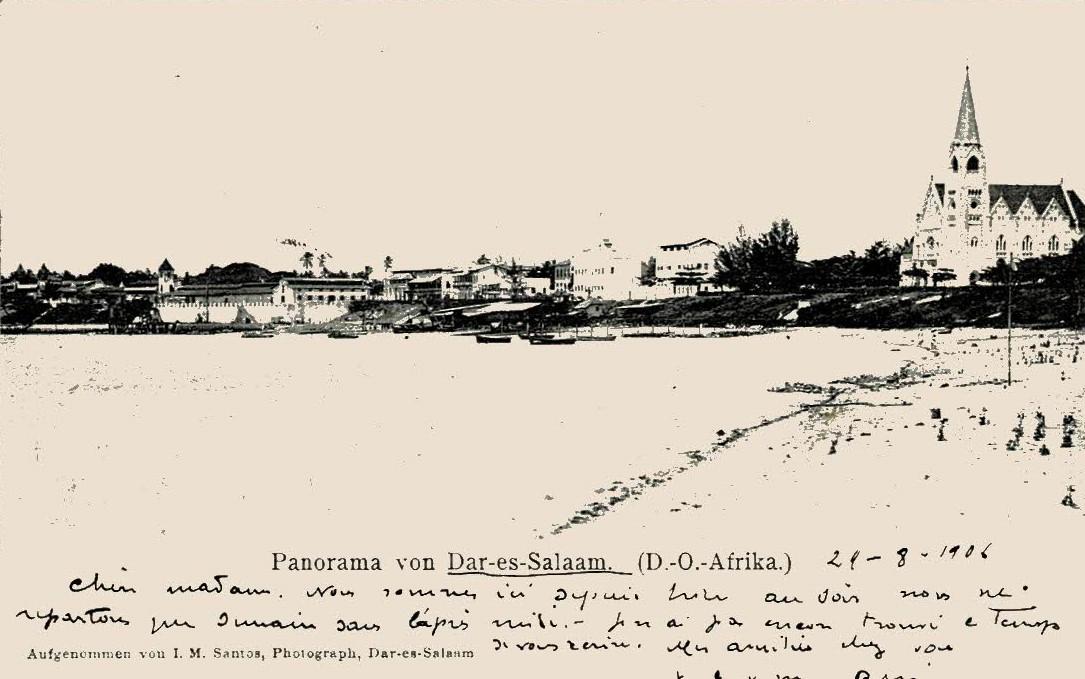 Panorama von Dar-es-Salaam. (D.-O.-Afrika.) 29-8-1906
madame. Nous sommes ici depuis hier au soir nous ne
repartons que demain dans l'après midi. - Je n'ai pas encore trouvé le temps
Aufgenommen von I. M. Santos, Photograph, Dar-es-Salaam
de vous écrire. Mes amitiés chez vous